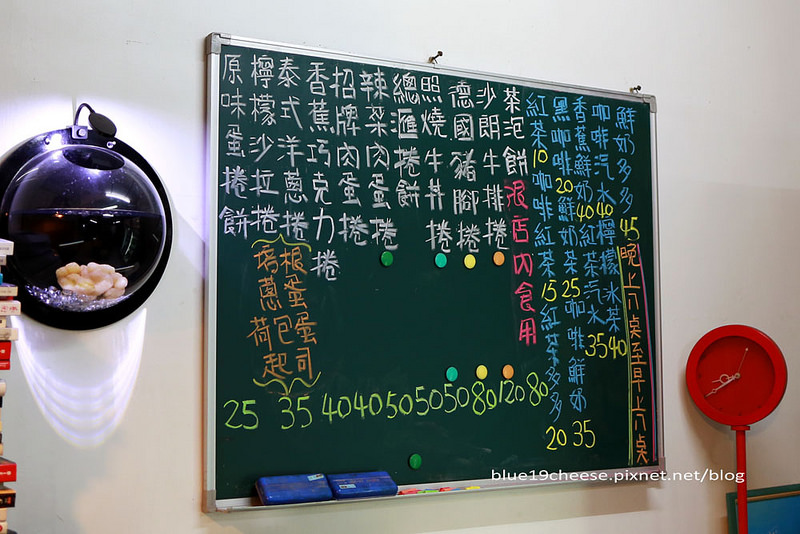 晚上八桌至早上八桌
鮮奶多多 45
咖啡汽水 40 檸檬冰茶 40
香蕉鮮奶 40 紅茶汽水 35
黑咖啡 20 鮮奶茶 25 咖啡鮮奶 35
紅茶 10 咖啡紅茶 15 紅茶多多 20
茶泡餅
限店內食用
沙朗牛排捲
德國豬腳捲
照燒牛丼捲
總滙捲餅
辣菜肉蛋捲
招牌肉蛋捲
香蕉巧克力捲
泰式洋蔥捲
檸檬沙拉捲
原味蛋捲餅
培根
蔥蛋
荷包蛋
起司
25 35 40 40 50 50 50 80 120 80
blue19cheese.pixnet.net/blog